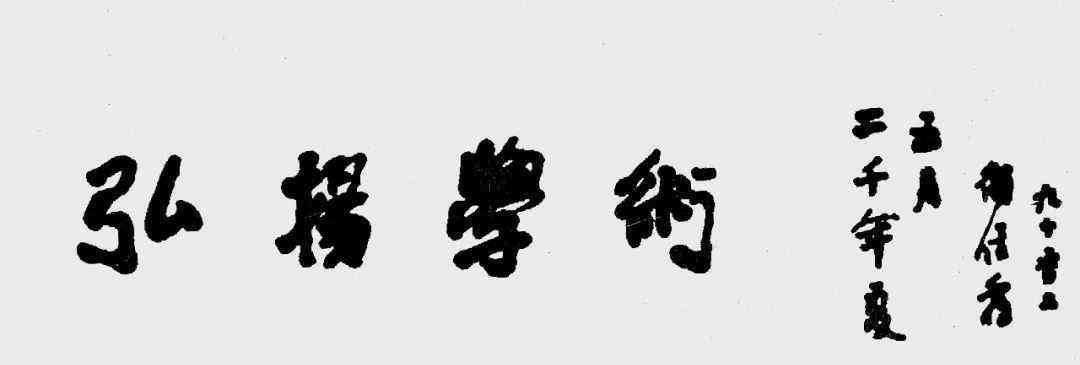 弘揚學術
二千年夏
五月
任
九十